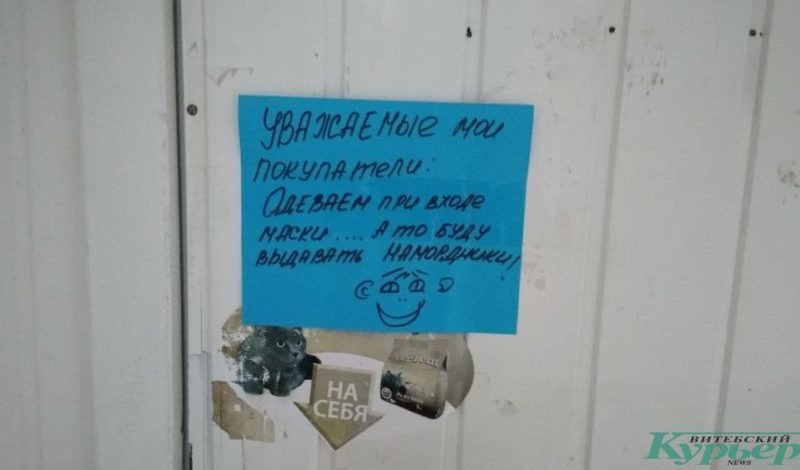 УВАЖАЕМЫЕ МОИ
ПОКУПАТЕЛИ:
ОДЕВАЕМ ПРИ ВХОДЕ
МАСКИ.... А ТО БУДУ
ВЫДАВАТЬ НАМОРДНИКИ!
НА
СЕБЯ
ВИТЕБСКИЙ
Курьер
NEWS